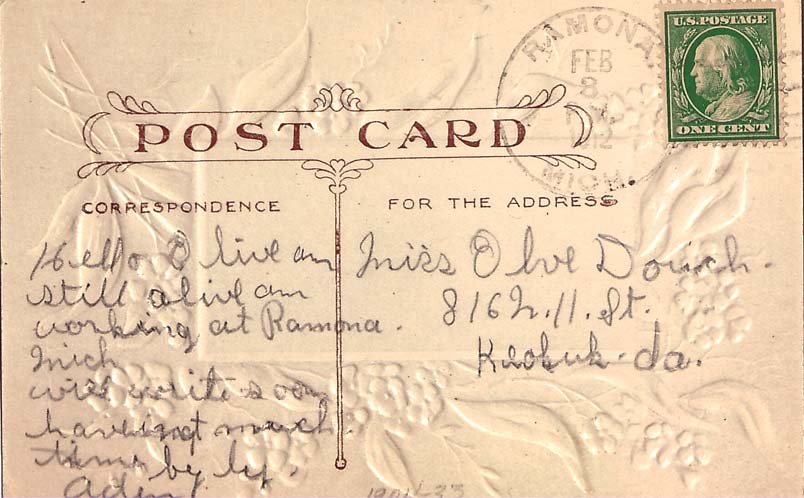 RAMONA.
FEB
8
1912
MICH.
U.S. POSTAGE
ONE CENT
POST CARD
CORRESPONDENCE
FOR THE ADDRESS
Hello Olive am
still alive am
working at Ramona.
Mich
will write soon
haveingt much
time by by.
Miss Olive
816 N. 11. St.
Keokuk Ia.